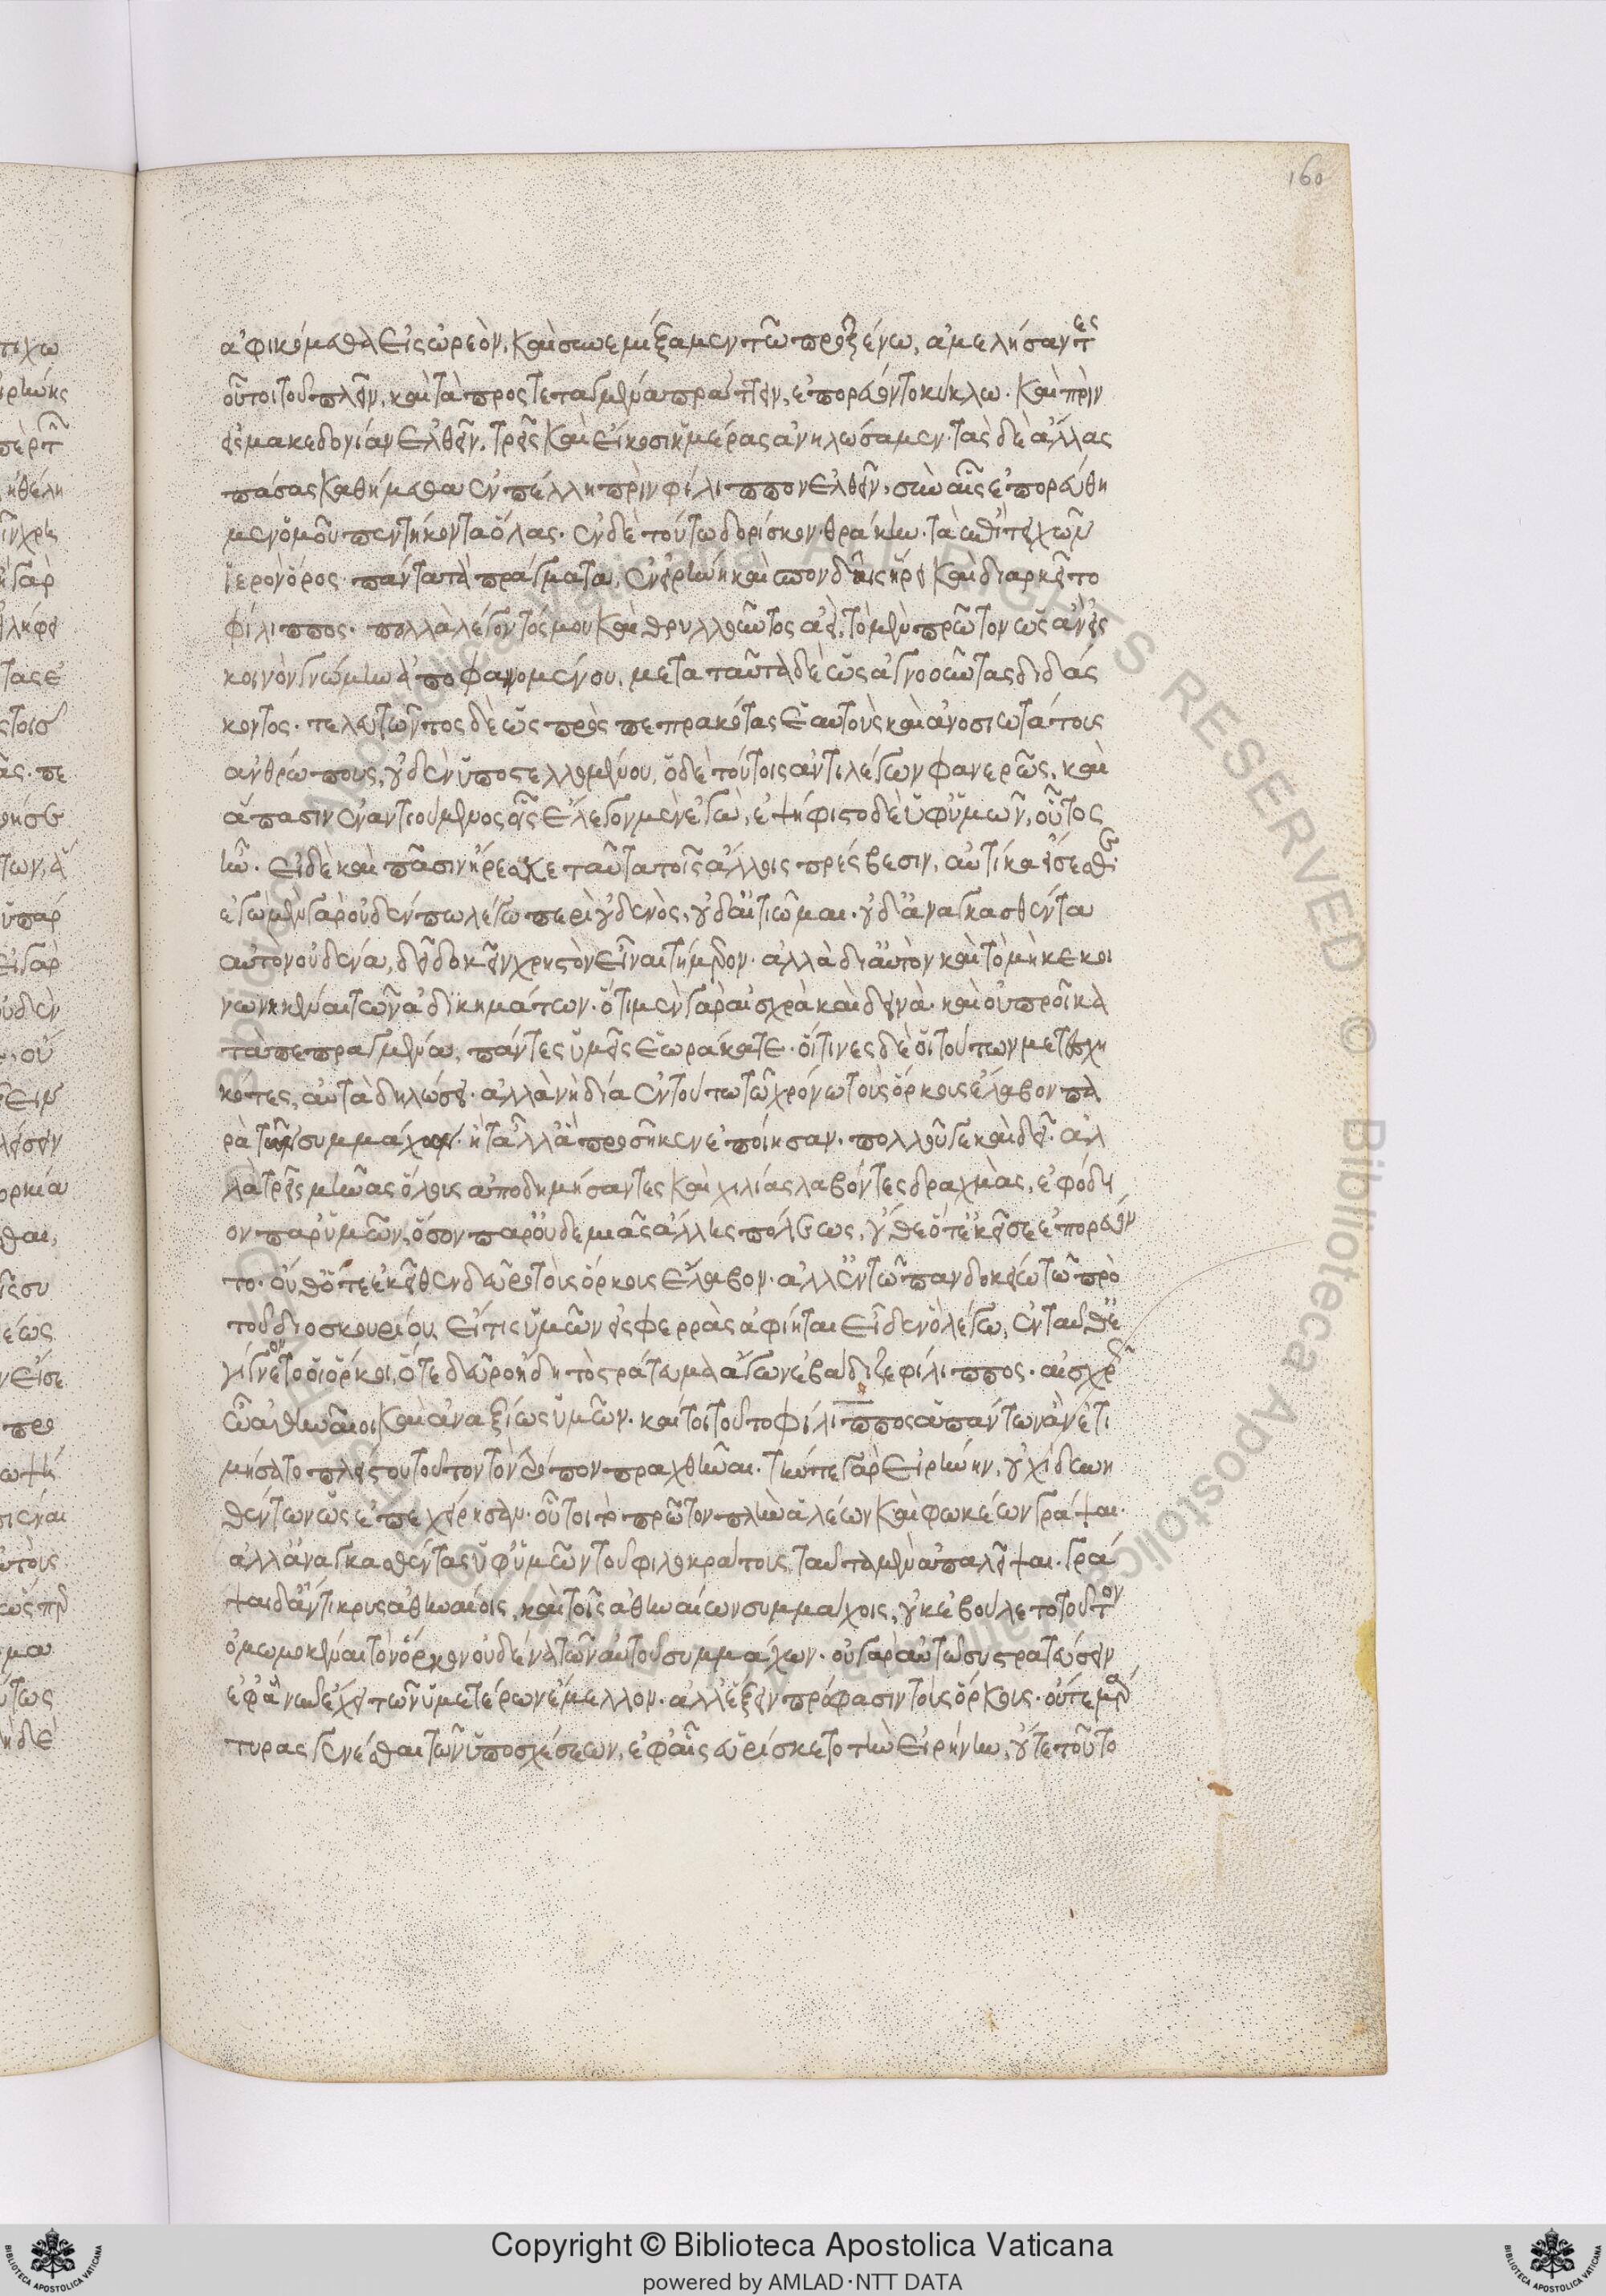 160
ἀφικόμεθα εἰς ὠρεὸν, καὶ συνεμίξαμεν τῶ προξένω, ἀμελήσαντες
οὗτοι τοῦ πλεῖν, καὶ τὰ προστεταγμένα πράττειν, ἐπορεύοντο κύκλω. καὶ πρὶν
εἰς μακεδονίαν ἐλθεῖν, τρεῖς καὶ εἴκοσιν ἡμέρας ἀνηλώσαμεν. τὰς δὲ ἄλλας
πάσας καθήμεθα ἐν πέλλη πρὶν φίλιππον ἐλθεῖν, σὺν αἷς ἐπορεύθη
μεν ὁμοῦ πεντήκοντα ὅλας. ἐν δὲ τούτω δορίσκον. θράκην. τὰ ἐπὶ τειχῶν
ἱερὸν ὄρος. πάντα τὰ πράγματα, ἐν εἰρήνη καὶ σπονδαῖς ἥρει καὶ διωκεῖτο
φίλιππος. πολλὰ λέγοντός μου καὶ θρυλλοῦντος ἀεὶ, τὸ μὲν πρῶτον ὡς ἂν εἰς
κοινὸν γνώμην ἀποφαινομένου, μετὰ ταῦτα δὲ ὡς ἀγνοοῦντας διδάς
κοντος. τελευτῶντος δὲ ὡς πρὸς πεπρακότας ἑαυτοὺς καὶ ἀνοσιωτάτους
ἀνθρώπους, οὐδὲν ὑποστελλομένου, ὁ δὲ τούτοις ἀντιλέγων φανερῶς, καὶ
ἅπασιν ἐναντιούμενος οἷς ἔλεγον μὲν ἐγὼ, ἐψήφιστο δὲ ὑφ' ὑμῶν, οὗτος
ἦν. εἰ δὲ καὶ πᾶσιν ἤρεσκε ταῦτα τοῖς ἄλλοις πρέσβεσιν, αὐτίκα εἴσεσθε.
ἐγὼ μὲν γὰρ οὐδέν πω λέγω περὶ οὐδενὸς, οὐδ' αἰτιῶμαι. οὐδ' ἀναγκασθέντα
αὐτῶν οὐδένα, δεῖ δοκεῖν χρηστὸν εἶναι τήμερον. ἀλλὰ δι' αὑτὸν καὶ τὸ μὴ κεκοι
νωνηκέναι τῶν ἀδικημάτων. ὅτι μὲν γὰρ αἰσχρὰ καὶ δεινὰ. καὶ οὐ προῖκα
τὰ πεπραγμένα, πάντες ὑμεῖς ἑωράκατε. οἵτινες δὲ οἱ τούτων μετεσχη
κότες, αὐτὰ δηλώσει. ἀλλὰ νὴ δία ἐν τούτω τῶ χρόνω τοὺς ὅρκους ἔλαβον πα
ρὰ τῶν συμμάχων. ἢ τἄλλ' ἃ προσῆκεν ἐποίησαν. πολλοῦ γε καὶ δεῖ. ἀλ
λὰ τρεῖς μῆνας ὅλους ἀποδημήσαντες καὶ χιλίας λαβόντες δραχμὰς, ἐφόδι
ον παρ' ὑμῶν, ὅσον παρ' οὐδεμιᾶς ἄλλης πόλεως, οὔθ' ὅτ' ἐκεῖσε ἐπορεύον
το. οὔθ' ὅτε ἐκεῖθεν δεῦρο τοὺς ὅρκους ἔλαβον. ἀλλ' ἐν τῶ πανδοκείω τῶ πρὸ
τοῦ διοσκουρίου. εἴ τις ὑμῶν εἰς φερρὰς ἀφῖκται εἶδεν ὃ λέγω, ἐνταῦθ' ἐ
γίγνοντο οἱ ὅρκοι, ὅτε δεῦρο ἤδη τὸ στράτευμα ἄγων ἐβάδιζε φίλιππος. αἰσχρῶς
ὦ ἀθηναῖοι καὶ ἀναξίως ὑμῶν. καίτοι τοῦτο φίλιππος ἁπάντων ἂν ἐτι
μήσατο πλείστου τοῦτον τὸν τρόπον πραχθῆναι. τήν τε γὰρ εἰρήνην, οὐχὶ δυνη
θέντων ὡς ἐπεχείρησαν. οὗτοι τὸ πρῶτον πλὴν ἁλέων καὶ φωκέων γράψαι.
ἀλλ' ἀναγκασθέντας ὑφ' ὑμῶν τοῦ φιλοκράτους, ταῦτα μὲν ἀπαλεῖψαι. γρά
ψαι δ' ἄντικρυς ἀθηναίοις, καὶ τοῖς ἀθηναίων συμμάχοις, οὐκ ἐβούλετο τοῦτον
ὀμωμοκέναι τὸν ὅρκον οὐδένα τῶν αὐτοῦ συμμάχων. οὐ γὰρ αὐτῶ συστρατεύσειν
ἐφ' ἃ νῦν ἔχει τῶν ὑμετέρων ἔμελλον. ἀλλ' ἕξειν πρόφασιν τοὺς ὅρκους. οὔτε μάρ
τυρας γενέσθαι τῶν ὑποσχέσεων, ἐφ' αἷς εὑρίσκετο τὴν εἰρήνην, οὔτε τοῦτο
Copyright © Biblioteca Apostolica Vaticana
powered by AMLAD·NTT DATA